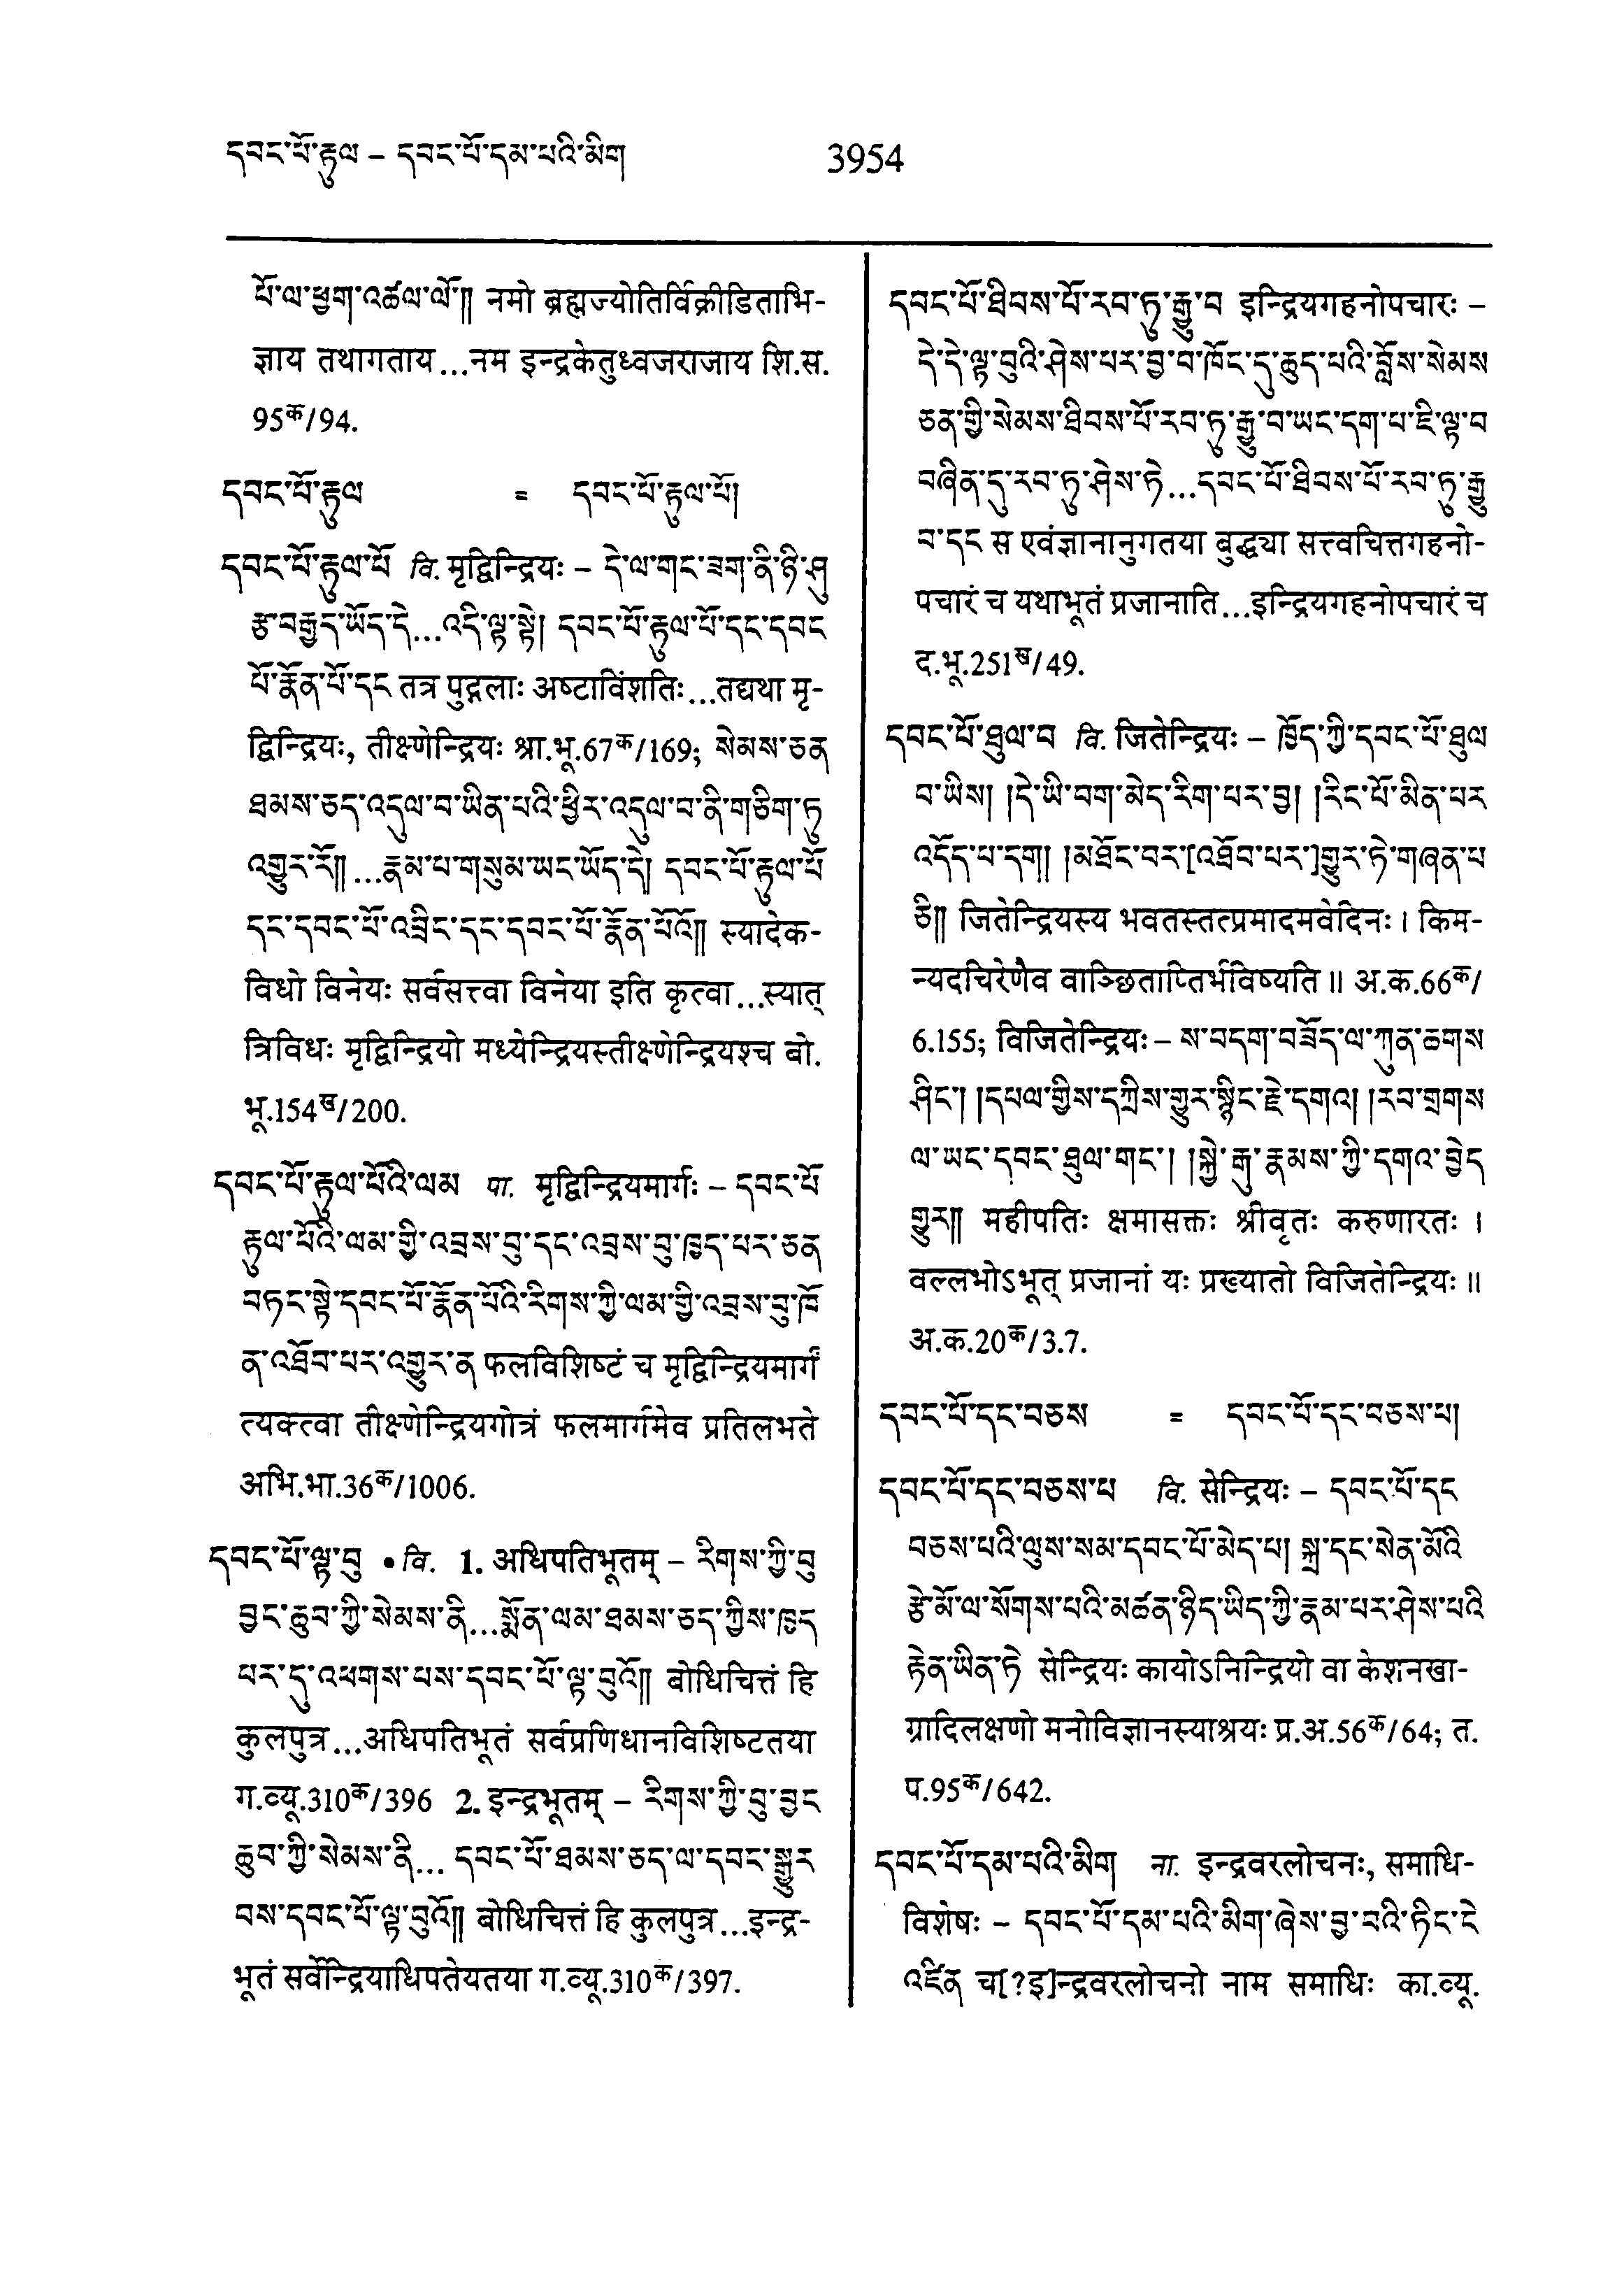 དབང་པོ་རྟུལ – དབང་པོ་དམ་པའི་མིག
3954
པོ་ལ་ཕྱག་འཚལ་ལོ༎ नमो ब्रह्मज्योतिर्विक्रीडिताभि-
ज्ञाय तथागताय...नम इन्द्रकेतुध्वजराजाय शि.स.
95क/94.
དབང་པོ་རྟུལ = དབང་པོ་རྟུལ་པོ།
དབང་པོ་རྟུལ་པོ वि. मृद्विन्द्रियः – དེ་ལ་གང་ཟག་ནི་ཉི་ཤུ
རྩ་བརྒྱད་ཡོད་དེ...འདི་ལྟ་སྟེ། དབང་པོ་རྟུལ་པོ་དང་དབང
པོ་རྣོན་པོ་དང तत्र पुद्गलाः अष्टाविंशतिः...तद्यथा मृ-
द्विन्द्रियः, तीक्ष्णेन्द्रियः श्रा.भू.67क/169; སེམས་ཅན
ཐམས་ཅད་འདུལ་བ་ཡིན་པའི་ཕྱིར་འདུལ་བ་ནི་གཅིག་ཏུ
འགྱུར་རོ༎...རྣམ་པ་གསུམ་ཡང་ཡོད་དེ། དབང་པོ་རྟུལ་པོ
དང་དབང་པོ་འབྲིང་དང་དབང་པོ་རྣོན་པོའོ༎ स्यादेक-
विधो विनेयः सर्वसत्त्वा विनेया इति कृत्वा...स्यात्
त्रिविधः मृद्विन्द्रियो मध्येन्द्रियस्तीक्ष्णेन्द्रियश्च बो.
भू.154ख/200.
དབང་པོ་རྟུལ་པོའི་ལམ पा. मृद्विन्द्रियमार्गः – དབང་པོ
རྟུལ་པོའི་ལམ་གྱི་འབྲས་བུ་དང་འབྲས་བུ་ཁྱད་པར་ཅན
བཏང་སྟེ་དབང་པོ་རྣོན་པོའི་རིགས་ཀྱི་ལམ་གྱི་འབྲས་བུ་ཁོ
ན་འཐོབ་པར་འགྱུར་ན फलविशिष्टं च मृद्विन्द्रियमार्गं
त्यक्त्वा तीक्ष्णेन्द्रियगोत्रं फलमार्गमेव प्रतिलभते
अभि.भा.36क/1006.
དབང་པོ་ལྟ་བུ • वि. 1. अधिपतिभूतम् – རིགས་ཀྱི་བུ
བྱང་ཆུབ་ཀྱི་སེམས་ནི...སྨོན་ལམ་ཐམས་ཅད་ཀྱིས་ཁྱད
པར་དུ་འཕགས་པས་དབང་པོ་ལྟ་བུའོ༎ बोधिचित्तं हि
कुलपुत्र...अधिपतिभूतं सर्वप्रणिधानविशिष्टतया
ग.व्यू.310क/396 2. इन्द्रभूतम् – རིགས་ཀྱི་བུ་བྱང
ཆུབ་ཀྱི་སེམས་ནི... དབང་པོ་ཐམས་ཅད་ལ་དབང་སྒྱུར
བས་དབང་པོ་ལྟ་བུའོ༎ बोधिचित्तं हि कुलपुत्र...इन्द्र-
भूतं सर्वेन्द्रियाधिपतेयतया ग.व्यू.310क/397.
དབང་པོ་ཐིབས་པོ་རབ་ཏུ་རྒྱུ་བ इन्द्रियगहनोपचारः –
དེ་དེ་ལྟ་བུའི་ཤེས་པར་བྱ་བ་ཁོང་དུ་ཆུད་པའི་བློས་སེམས
ཅན་གྱི་སེམས་ཐིབས་པོ་རབ་ཏུ་རྒྱུ་བ་ཡང་དག་པ་ཇི་ལྟ་བ
བཞིན་དུ་རབ་ཏུ་ཤེས་ཏེ...དབང་པོ་ཐིབས་པོ་རབ་ཏུ་རྒྱུ
བ་དང स एवंज्ञानानुगतया बुद्ध्या सत्त्वचित्तगहनो-
पचारं च यथाभूतं प्रजानाति...इन्द्रियगहनोपचारं च
द.भू.251ख/49.
དབང་པོ་ཐུལ་བ वि. जितेन्द्रियः – ཁྱོད་ཀྱི་དབང་པོ་ཐུལ
བ་ཡིས། །དེ་ཡི་བག་མེད་རིག་པར་བྱ། །རིང་པོ་མིན་པར
འདོད་པ་དག། །མཐོང་བར་[འཐོབ་པར་]གྱུར་ཏེ་གཞན་པ
ཅི༎ जितेन्द्रियस्य भवतस्तत्प्रमादमवेदिनः । किम-
न्यदचिरेणैव वाञ्छिताप्तिर्भविष्यति ॥ अ.क.66क/
6.155; विजितेन्द्रियः – ས་བདག་བཟོད་ལ་ཀུན་ཆགས
ཤིང་། །དཔལ་གྱིས་དཀྲིས་གྱུར་སྙིང་རྗེ་དགའ། །རབ་གྲགས
ལ་ཡང་དབང་ཐུལ་གང་། །སྐྱེ་རྒུ་རྣམས་ཀྱི་དགའ་བྱེད
གྱུར༎ महीपतिः क्षमासक्तः श्रीवृतः करुणारतः ।
वल्लभोऽभूत् प्रजानां यः प्रख्यातो विजितेन्द्रियः ॥
अ.क.20क/3.7.
དབང་པོ་དང་བཅས = དབང་པོ་དང་བཅས་པ།
དབང་པོ་དང་བཅས་པ वि. सेन्द्रियः – དབང་པོ་དང
བཅས་པའི་ལུས་སམ་དབང་པོ་མེད་པ། སྐྲ་དང་སེན་མོའི
རྩེ་མོ་ལ་སོགས་པའི་མཚན་ཉིད་ཡིད་ཀྱི་རྣམ་པར་ཤེས་པའི
རྟེན་ཡིན་ཏེ सेन्द्रियः कायोऽनिन्द्रियो वा केशनखा-
ग्रादिलक्षणो मनोविज्ञानस्याश्रयः प्र.अ.56क/64; त.
प.95क/642.
དབང་པོ་དམ་པའི་མིག ना. इन्द्रवरलोचनः, समाधि-
विशेषः – དབང་པོ་དམ་པའི་མིག་ཞེས་བྱ་བའི་ཏིང་ངེ
འཛིན च[?इ]न्द्रवरलोचनो नाम समाधिः का.व्यू.